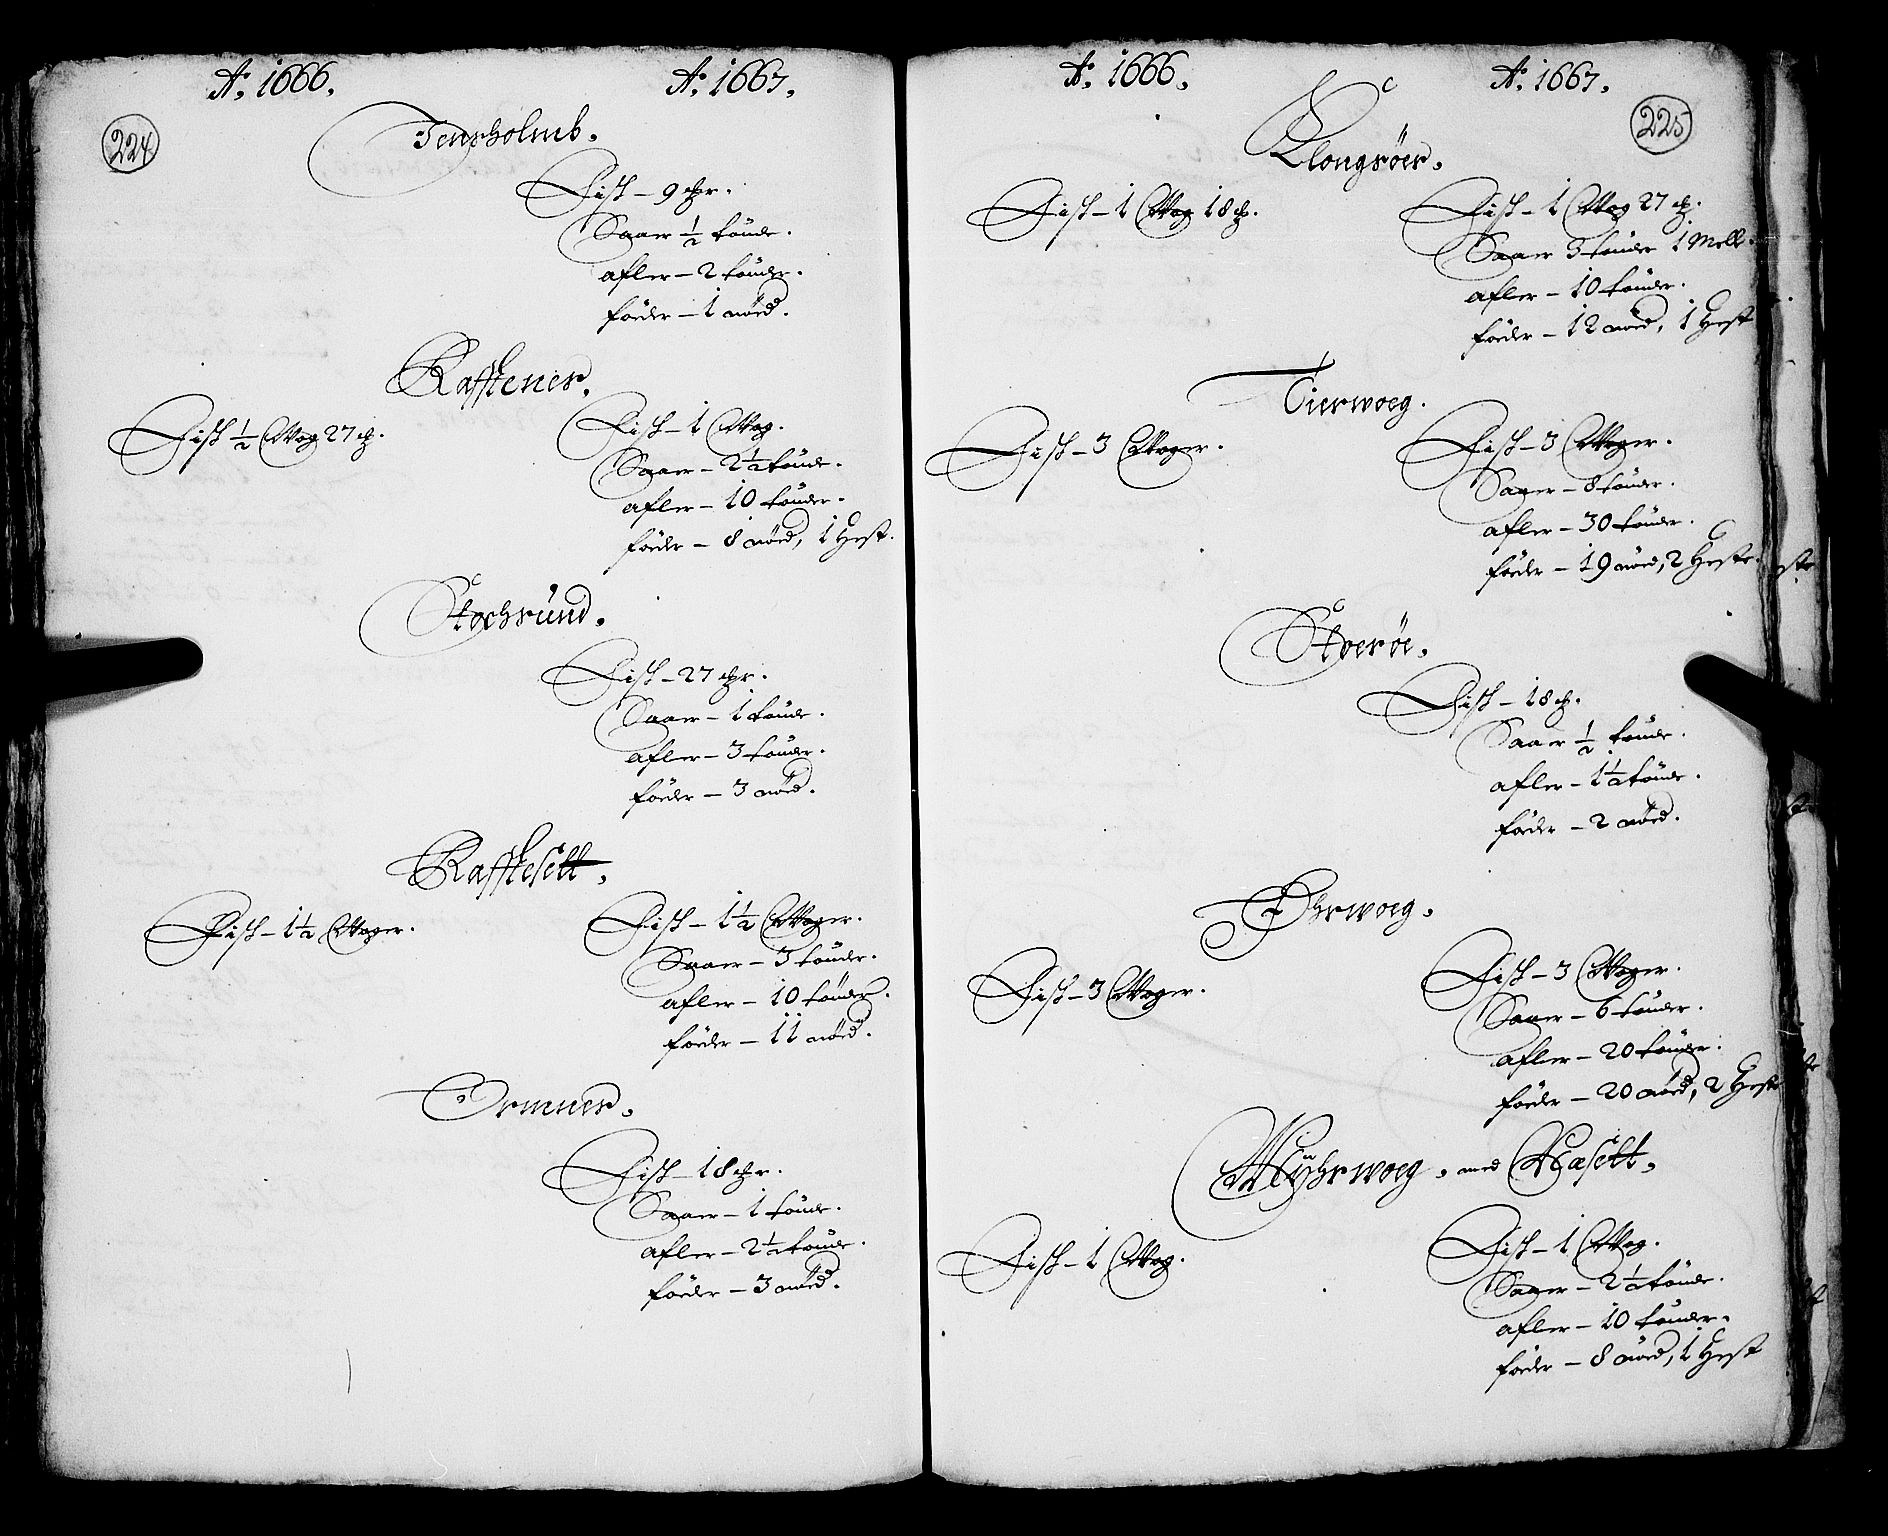 224
Ao. 1666. Ao. 1667.
Jensholmb.
Fisk - 9 
Saaer ½ tönde.
afler - 2 tönder.
föeder - 1 nöed.
Raffkenes.
Fisk ½ Wog 27  Fisk - 1 Wog.
Saaer - 2½ tönde.
afler - 10 tönder.
föeder - 8 nöed, 1 Hest.
Stochsund.
Fisk - 27 
Saaer - 1 tönde.
afler - 3 tönder.
föeder - 3 nöed.
Raffkesett.
Fisk - 1½ Woger. Fisk - 1½ Woger.
Saaer - 3 tönder.
afler - 10 tönder.
föeder - 11 nöed.
Ormnes.
Fisk - 18 
Saaer - 1 tönde.
afler - 2½ tönde.
föeder - 3 nöed.
225
Ao. 1666. Ao. 1667.
Klongsöer.
Fisk - 1 Wog 18  Fisk - 1 Wog 27 
Saaer 3 tönder 1 Mell.
afler - 10 tönder.
föeder - 12 nöed, 1 Hest
Tierwoeg.
Fisk - 3 Woger. Fisk - 3 Woger.
Saaer - 8 tönder.
afler - 30 tönder.
föeder - 19 nöed, 2 Heste.
Stoeröe.
Fisk - 18 
Saaer ½ tönde.
afler - 1½ tönde.
föeder - 2 nöed.
Ohrwoeg.
Fisk - 3 Woger. Fisk - 3 Woger.
Saaer - 6 tönder.
afler - 20 tönder.
föeder - 20 nöed, 2 Heste
Myhrwoeg, med Nasett.
Fisk - 1 Wog. Fisk - 1 Wog.
Saaer - 2½ tönde.
afler - 10 tönder.
föeder - 8 nöed, 1 Hest